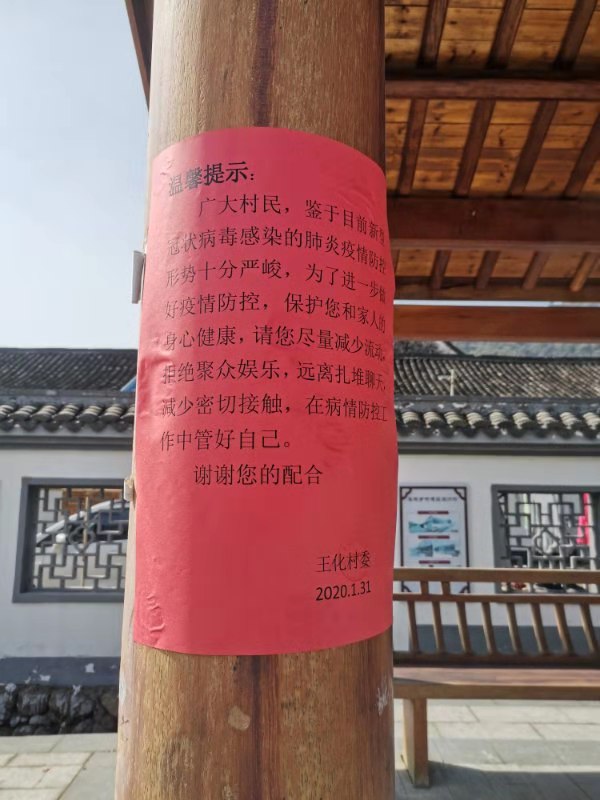 温馨提示：
广大村民，鉴于目前新型
冠状病毒感染的肺炎疫情防控
形势十分严峻，为了进一步做
好疫情防控，保护您和家人的
身心健康，请您尽量减少流动，
拒绝聚众娱乐，远离扎堆聊天，
减少密切接触，在病情防控工
作中管好自己。
谢谢您的配合
王化村委
2020.1.31